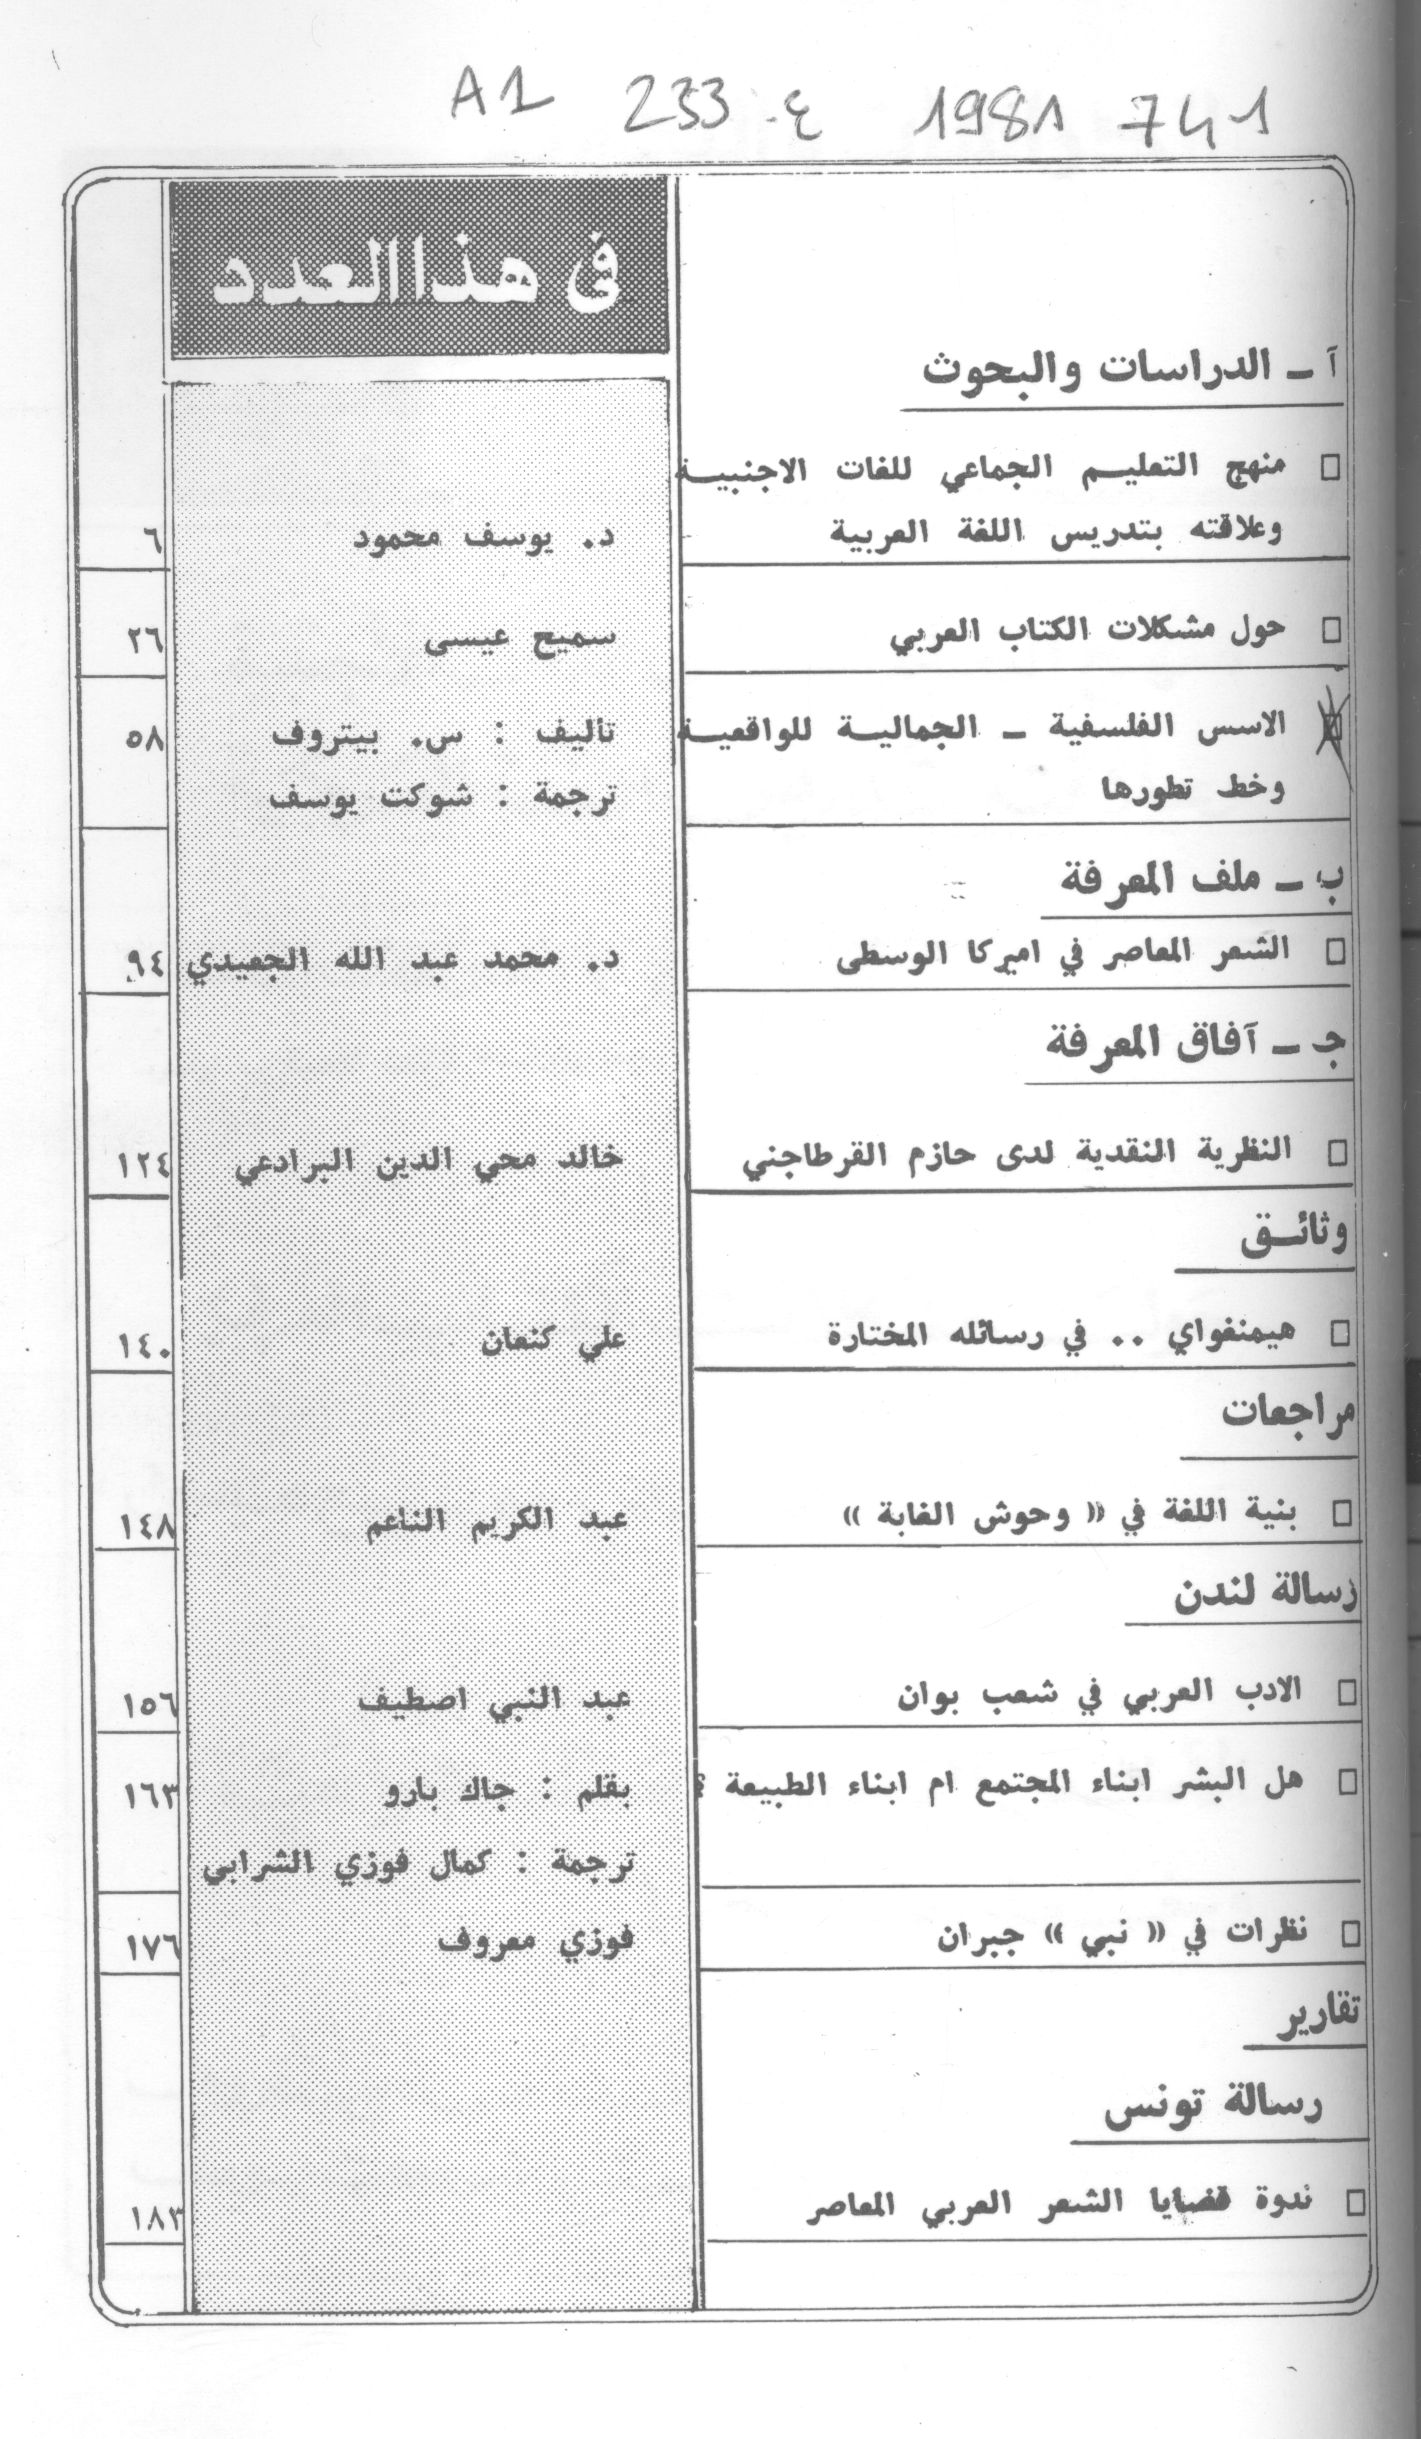 A1 233 ع. 1981 741
في هذا العدد
آ ـ الدراسات والبحوث
□ منهج التعليــم الجماعي للغات الاجنبيــة
وعلاقته بتدريس اللغة العربية د. يوسف محمود ٦
□ حول مشكلات الكتاب العربي سميح عيسى ٢٦
□ الاسس الفلسفية ـ الجماليــة للواقعيــة تأليف : س. بيتروف ٥٨
وخط تطورها ترجمة : شوكت يوسف
ب ـ ملف المعرفة
□ الشعر المعاصر في اميركا الوسطى د. محمد عبد الله الجعيدي ٩٤
جـ ـ آفاق المعرفة
□ النظرية النقدية لدى حازم القرطاجني خالد محي الدين البرادعي ١٢٤
وثائــق
□ هيمنغواي .. في رسائله المختارة علي كنعان ١٤٠
مراجعات
□ بنية اللغة في « وحوش الغابة » عبد الكريم الناعم ١٤٨
رسالة لندن
□ الادب العربي في شعب بوان عبد النبي اصطيف ١٥٦
□ هل البشر ابناء المجتمع ام ابناء الطبيعة ؟ بقلم : جاك بارو ١٦٣
ترجمة : كمال فوزي الشرابي
□ نظرات في « نبي » جبران فوزي معروف ١٧٦
تقارير
رسالة تونس
□ ندوة قضايا الشعر العربي المعاصر ١٨٣